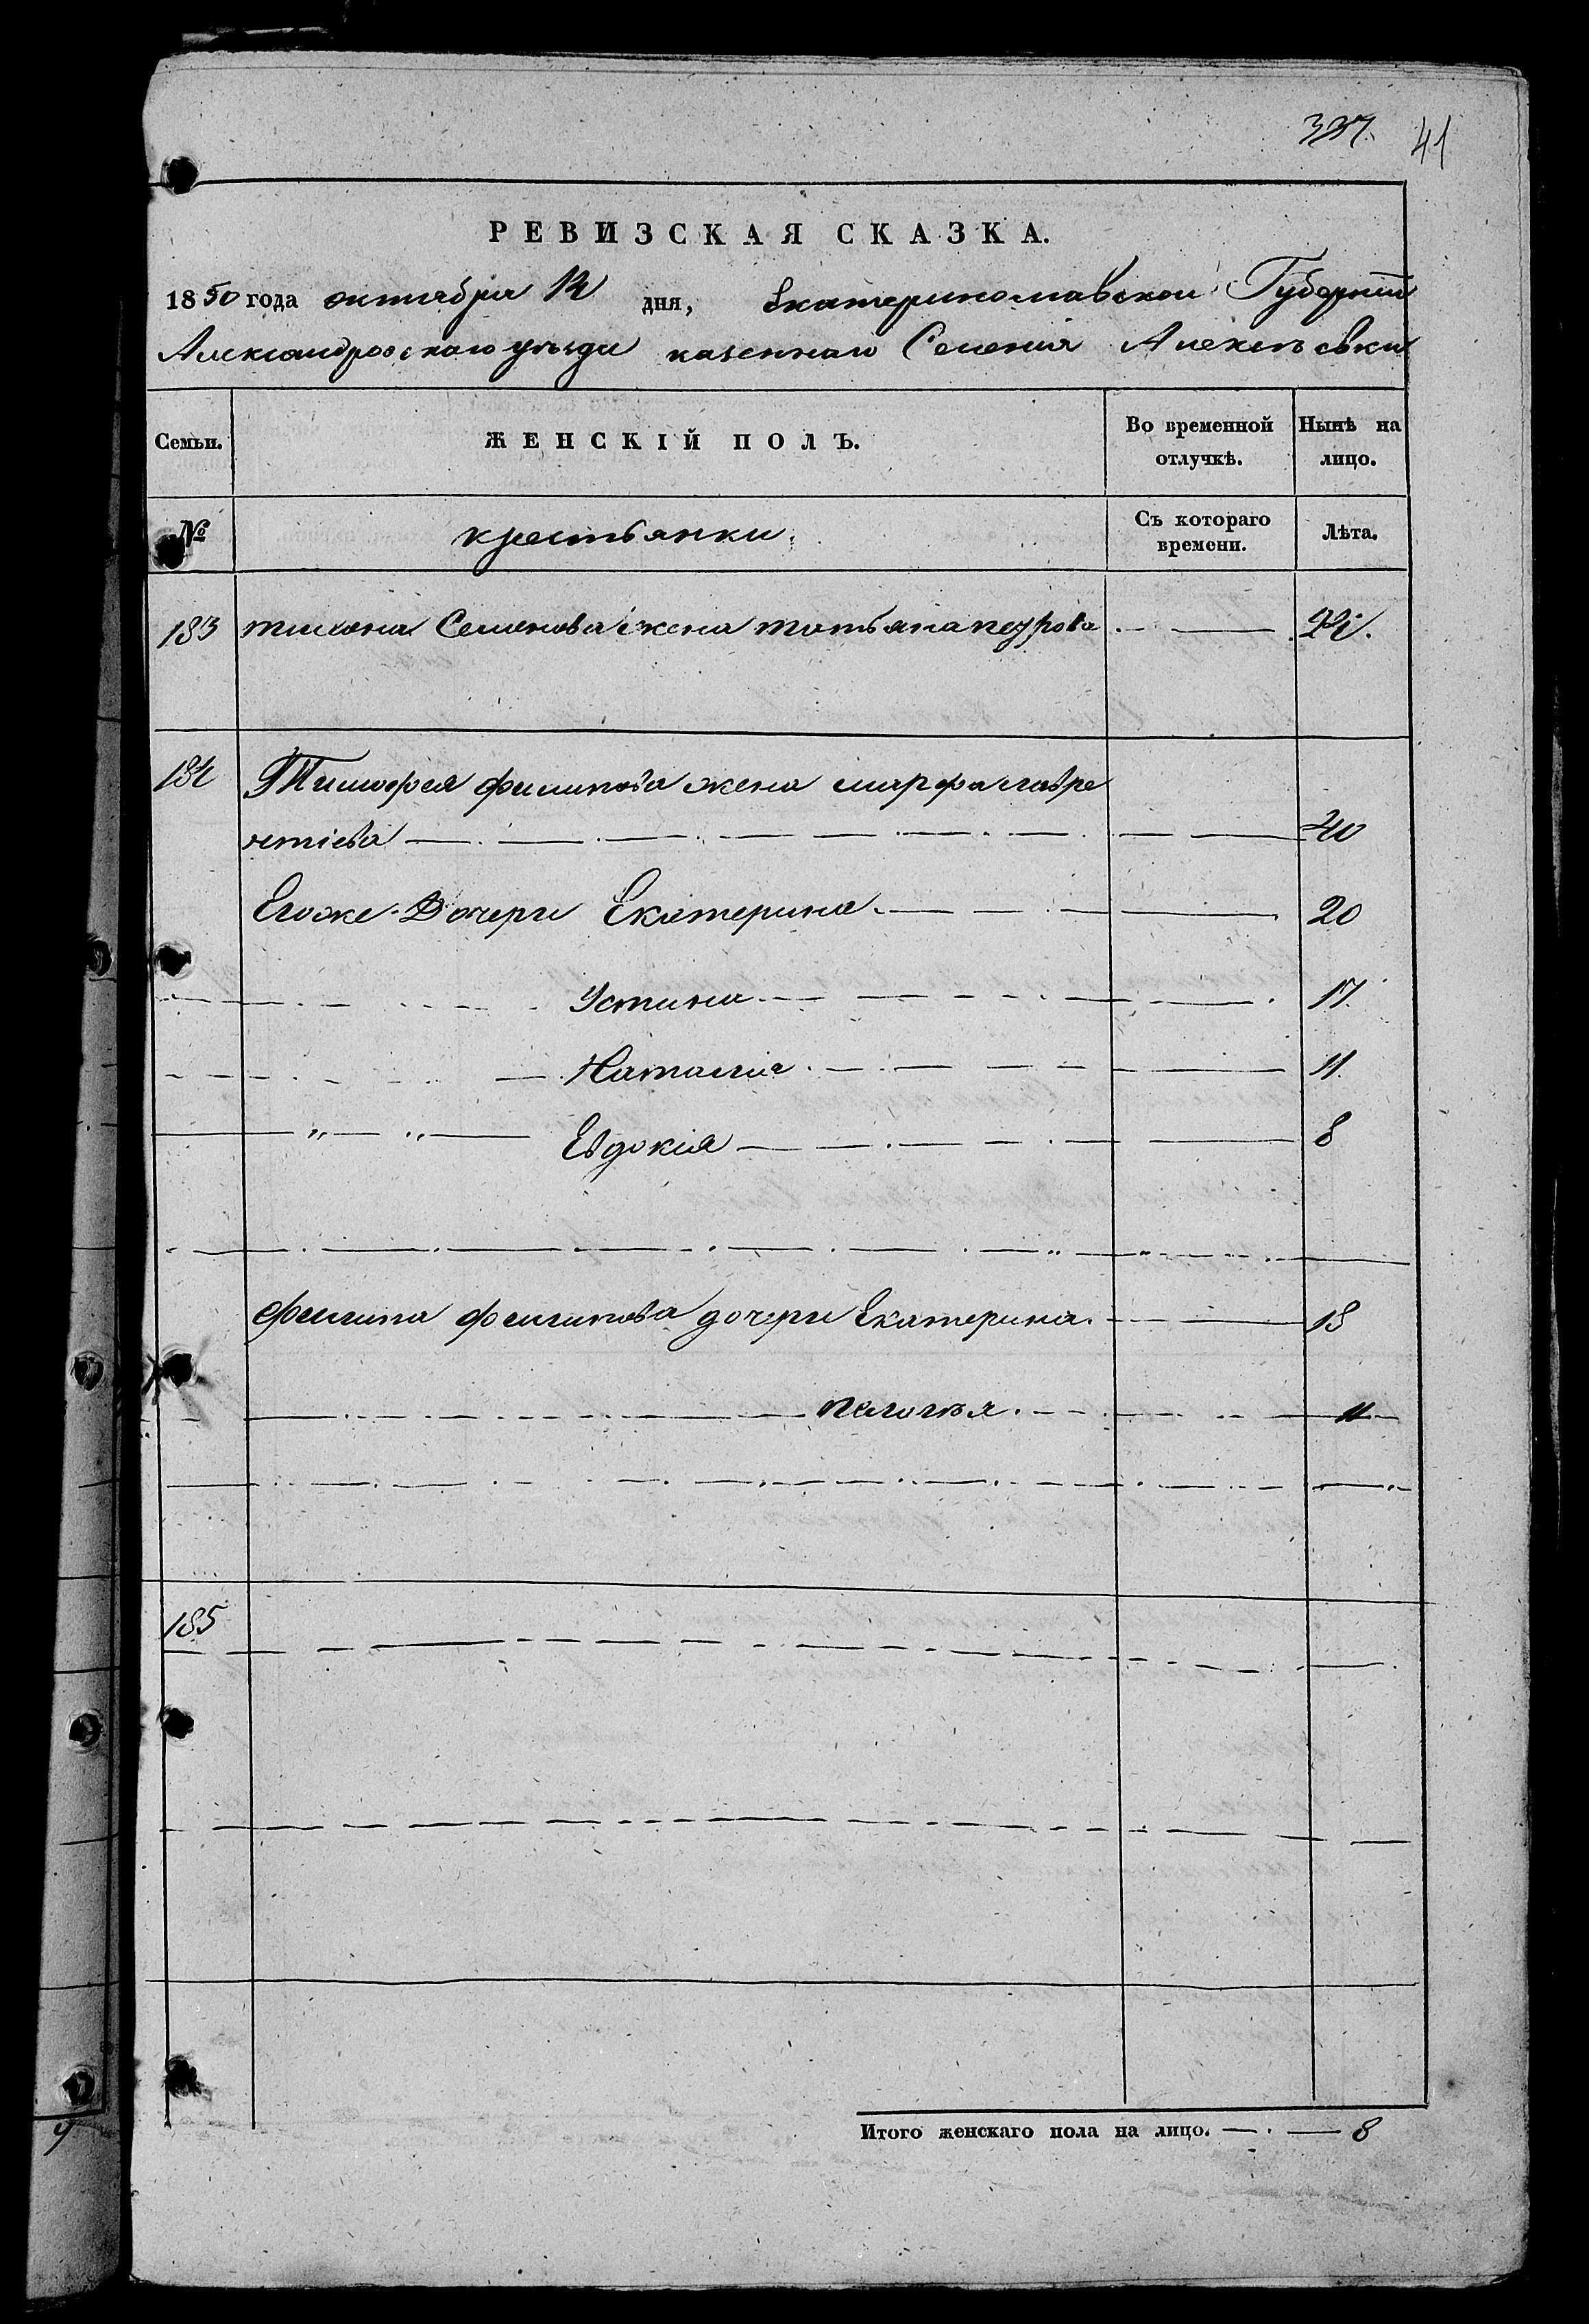 337. 41
РЕВИЗСКАЯ СКАЗКА.
1850 года октября дня, Екатеринославской Губерніи
Александровскаго уѣзда казеннаго Селенія Алексѣевки
Семьи. ЖЕНСКІЙ ПОЛЪ. Во временной отлучкѣ. Нынѣ на лицо.
№ крестьянки. Съ котораго времени. Лѣта.
183 тихона Семенова жена татьяна петрова
184 Тимофея филипова жена марфа лавре
нтіева 40
Егоже Дочери Екатерина 20
Устина 17.
Наталия 11.
Евдокия 8
Филипа филипова дочери Екатерина 13
пелагѣя 11
185
Итого женскаго пола на лицо. 8